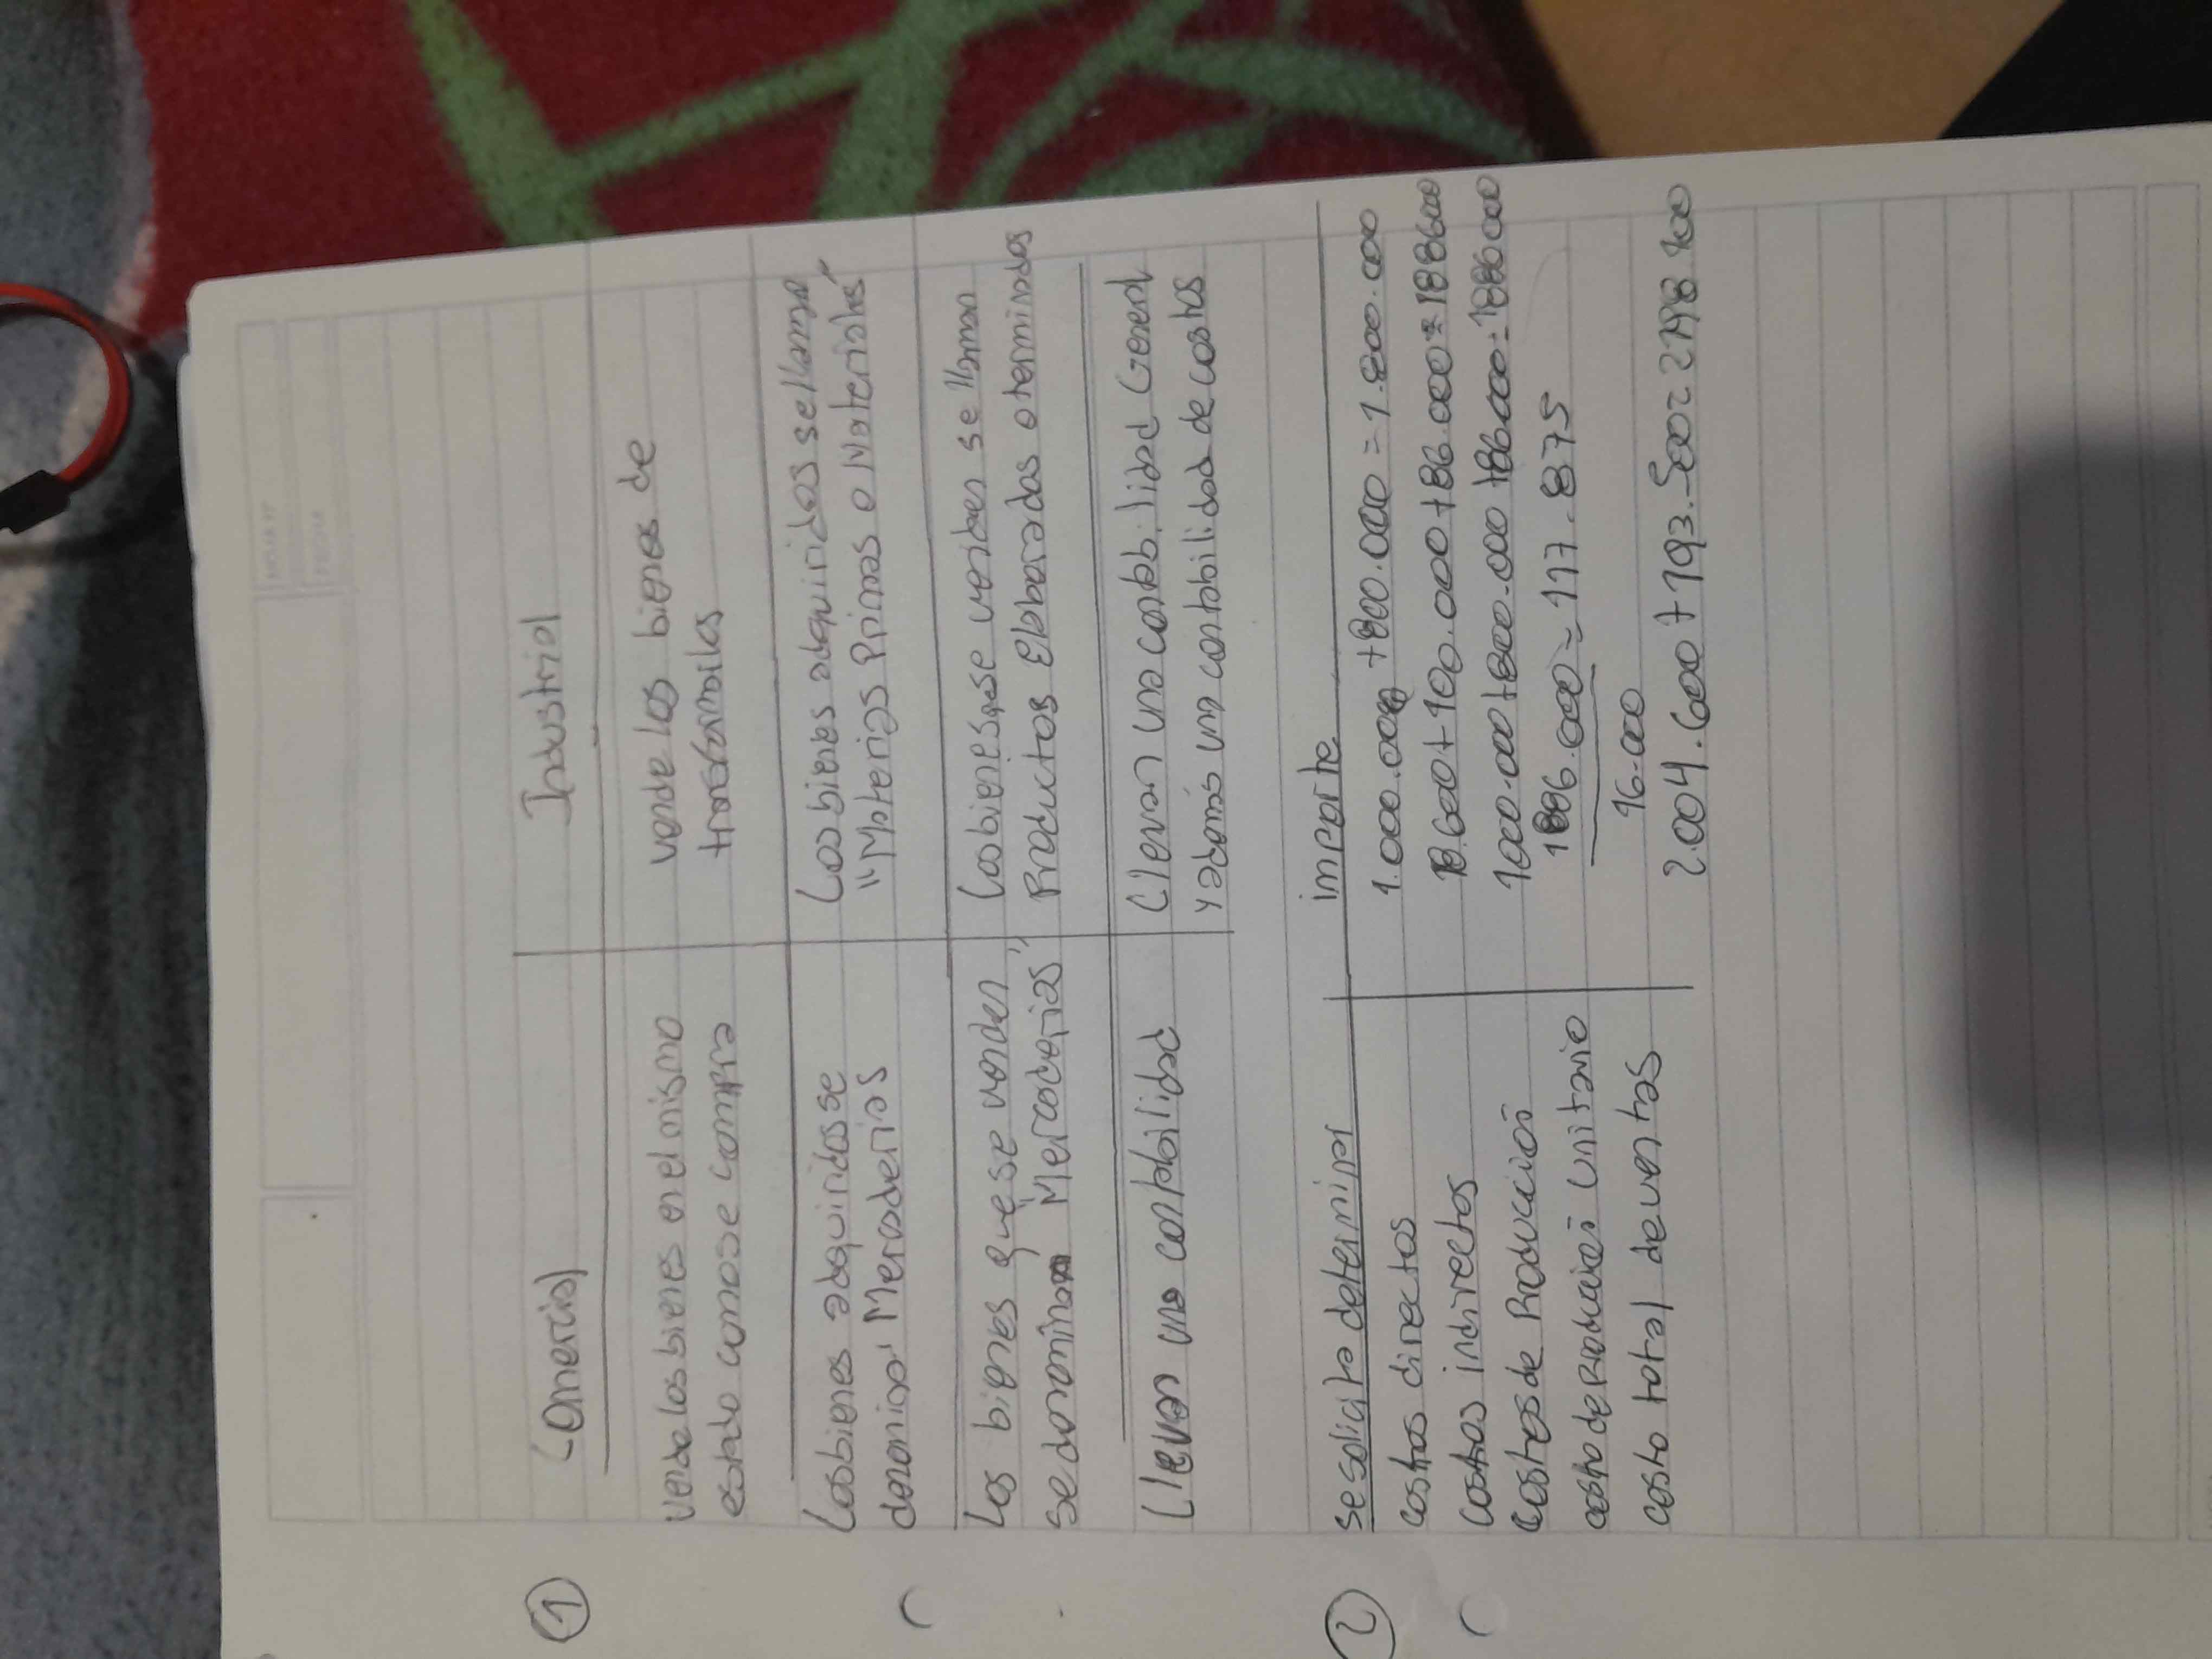 ①
Comercial Industrial
vende los bienes en el mismo vende los bienes de
estado como se compra transformarlos
Los bienes adquiridos se Los bienes adquiridos se llama
denomina" Mercaderias "Materias Primas o Materiales"
Los bienes que se venden Los bienes que se venden se llaman
se denominan "Mercaderias" Productos Elaborados o terminados
Llevan una contabilidad Llevan una contabilidad General
y además una contabilidad de costos
②
se solicita determinar importe
costos directos 1.000.000 +800.000 = 1.800.000
costos indirectos 18.600+100.000+86.000=188600
Costes de Producción 1000.000+800.000+86.000=1886000
costo de producción unitario 1886.000 = 117.875
16.000
costo total de ventas 2.004.600+193.500=